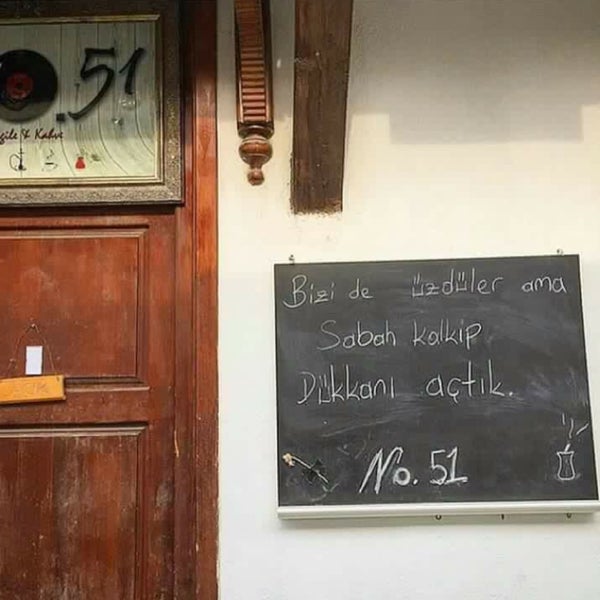 .51
gile & Kahve
Bizi de üzdüler ama
Sabah kalkıp
Dükkanı açtık.
No. 51